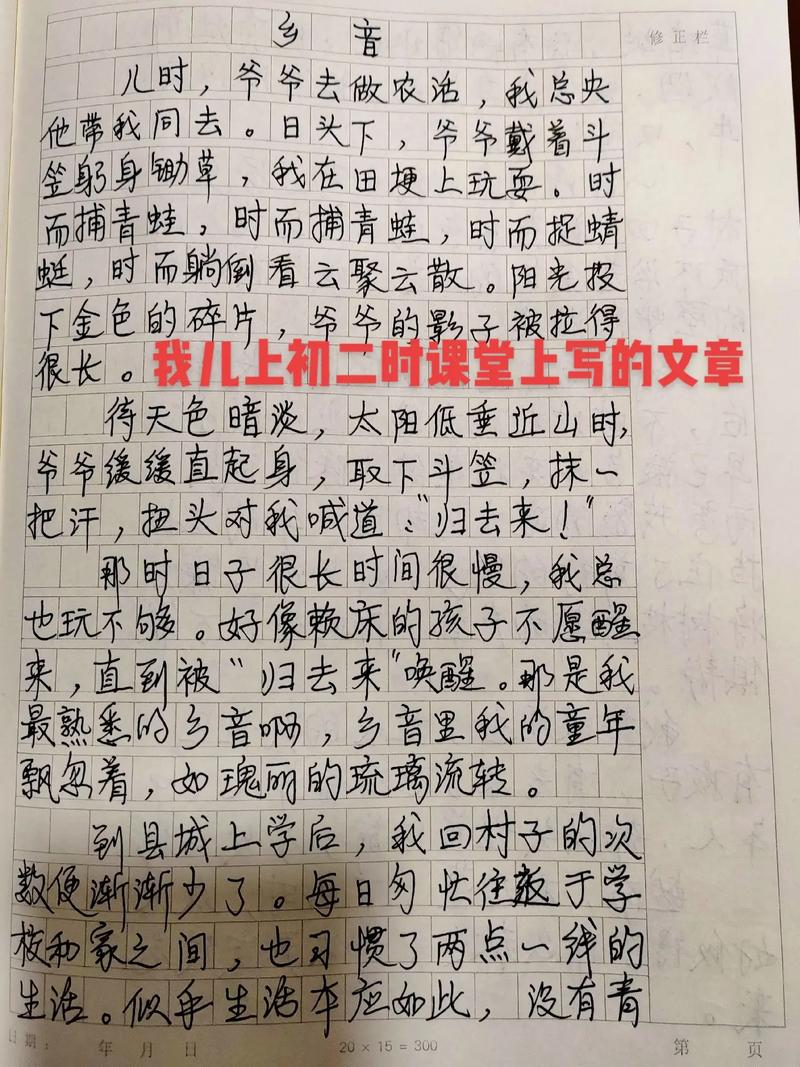 乡音
修正栏
儿时，爷爷去做农活，我总央
他带我同去。日头下，爷爷戴着斗
笠躬身锄草，我在田埂上玩耍。时
而捕青蛙，时而捕青蛙，时而捉蜻
蜓，时而躺倒看云聚云散。阳光投
下金色的碎片，爷爷的影子被拉得
很长。
我儿上初二时课堂上写的文章
待天色暗淡，太阳低垂近山时，
爷爷缓缓直起身，取下斗笠，抹一
把汗，扭头对我喊道："归去来！"
那时日子很长时间很慢，我总
也玩不够。好像赖床的孩子不愿醒
来，直到被"归去来"唤醒。那是我
最熟悉的乡音啊，乡音里我的童年
飘忽着，如瑰丽的琉璃流转。
到县城上学后，我回村子的次
数便渐渐少了。每日匆忙往返于学
校和家之间，也习惯了两点一线的
生活。似乎生活本应如此，没有青
日期： 年 月 日 20×15=300 第 页